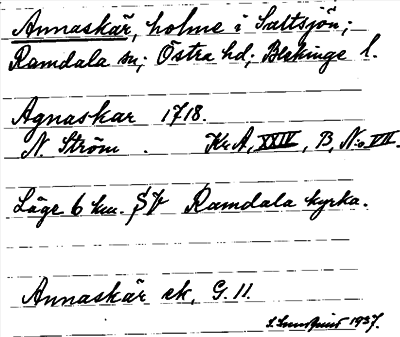 Annaskär, holme i Saltsjön;
Ramdala sn; Östra hd; Blekinge l.
Agnaskar 1718.
N. Ström . Kr. A, XXIV, B, No VII.
Läge 6 km. SV Ramdala kyrka.
Annaskär ek, G. 11.
1937.